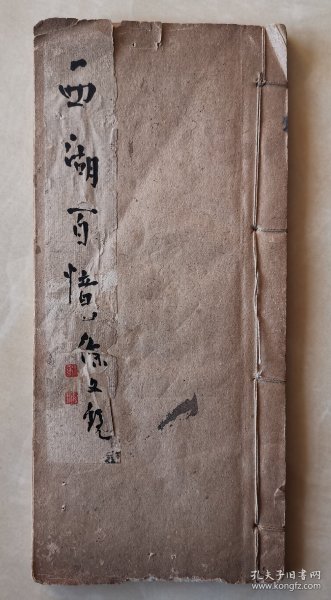 西湖百憶
徐文镜
孔夫子旧书网
www.kongfz.com